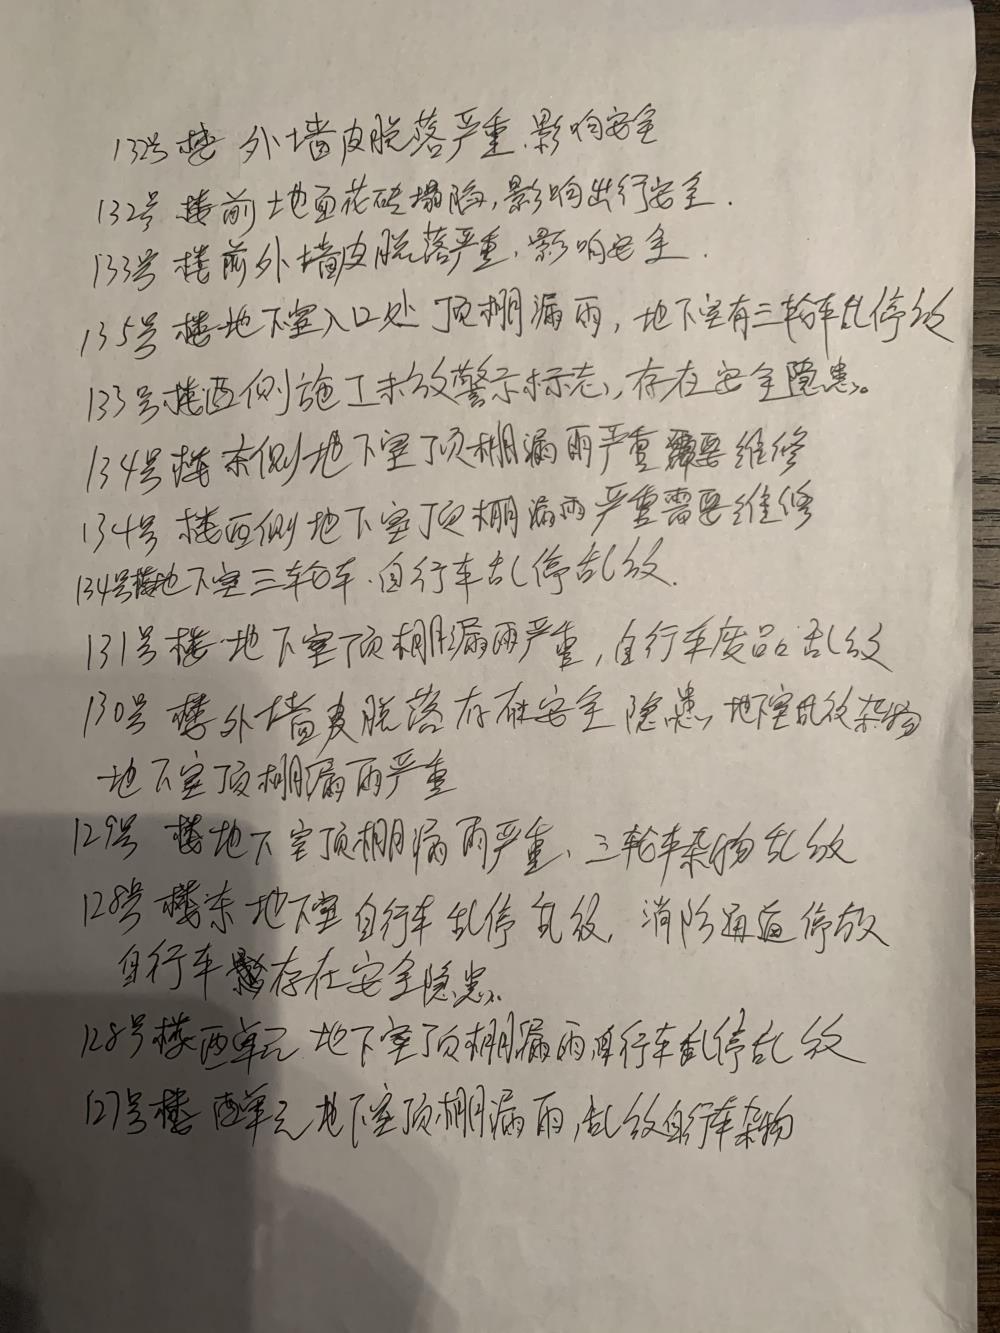 132号楼 外墙皮脱落严重、影响安全
132号楼前地面花砖塌陷,影响出行安全.
133号楼前外墙皮脱落严重,影响安全.
135号楼地下室入口处 顶棚漏雨,地下室有三轮车乱停放
133号楼西侧施工未放警示标志,存在安全隐患。
134号楼东侧地下室顶棚漏雨严重需要维修
134号楼西侧地下室顶棚漏雨严重需要维修
134号楼地下室三轮车.自行车乱停乱放.
131号楼地下室顶棚漏雨严重,自行车废品乱放
130号楼外墙皮脱落存在安全隐患,地下室乱放杂物
地下室顶棚漏雨严重
129号楼地下室顶棚漏雨严重、三轮车杂物乱放
128号楼东地下室自行车乱停乱放,消防通道停放
自行车 存在安全隐患.
128号楼西单元地下室顶棚漏雨,自行车乱停乱放
127号楼西单元地下室顶棚漏雨,乱放自行车杂物